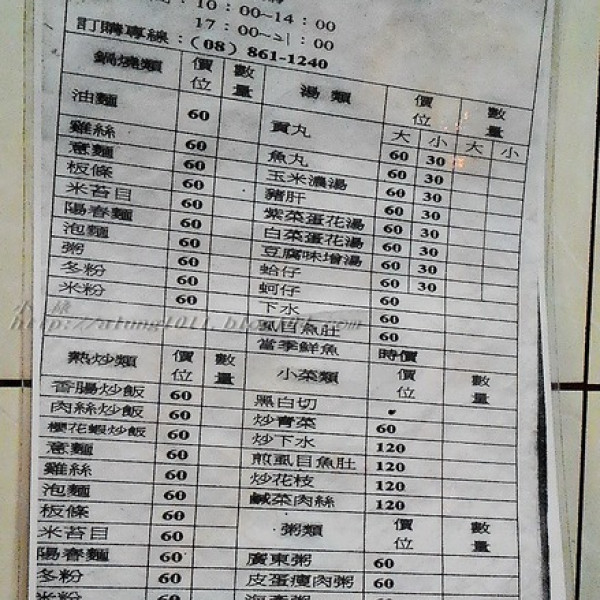 10：00~14：00
17：00~21：00
訂購專線：(08) 861-1240
鍋燒類 價位 數量 湯類 價位 數量
大 小 大 小
油麵 60 貢丸 60 30
雞絲 60 魚丸 60 30
意麵 60 玉米濃湯 60 30
板條 60 豬肝 60 30
米苔目 60 紫菜蛋花湯 60 30
陽春麵 60 白菜蛋花湯 60 30
泡麵 60 豆腐味增湯 60 30
粥 60 蛤仔 60
冬粉 60 蚵仔 60
米粉 60 下水 60
虱目魚肚 60
當季鮮魚 時價
熱炒類 價位 數量 小菜類 價位 數量
香腸炒飯 60 黑白切
肉絲炒飯 60 炒青菜 60
櫻花蝦炒飯 60 炒下水 120
意麵 60 煎虱目魚肚 120
雞絲 60 炒花枝 120
泡麵 60 鹹菜肉絲 120
板條 60 粥類 價位 數量
米苔目 60 廣東粥 60
陽春麵 60 皮蛋瘦肉粥 60
冬粉 60 海產粥 60
米粉 60